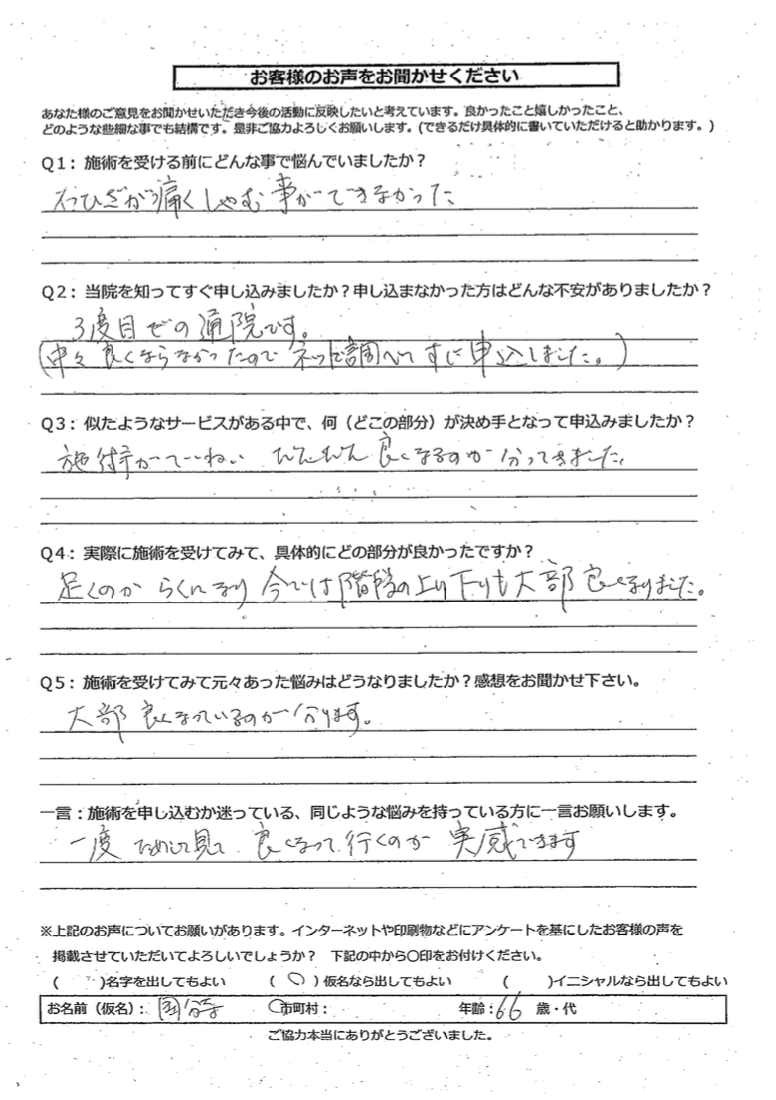 お客様のお声をお聞かせください
あなた様のご意見をお聞かせいただき今後の活動に反映したいと考えています。良かったこと嬉しかったこと、
どのような些細な事でも結構です。是非ご協力よろしくお願いします。(できるだけ具体的に書いていただけると助かります。)
Q1：施術を受ける前にどんな事で悩んでいましたか？
右ひざが痛くしゃむ事ができなかった
Q2：当院を知ってすぐ申し込みましたか？申し込まなかった方はどんな不安がありましたか？
3度目での通院です。
(中々良くならなかったのでネットで調べてすぐ申込しました。)
Q3：似たようなサービスがある中で、何（どこの部分）が決め手となって申込みましたか？
施術がていねい だんだん良くなるのが分ってきました。
Q4：実際に施術を受けてみて、具体的にどの部分が良かったですか？
歩くのがらくになり今では階段の上り下りも大部良くなりました。
Q5：施術を受けてみて元々あった悩みはどうなりましたか？感想をお聞かせ下さい。
大部良くなっているのが分ります。
一言：施術を申し込むか迷っている、同じような悩みを持っている方に一言お願いします。
一度ためして見て、良くなって行くのが実感できます
※上記のお声についてお願いがあります。インターネットや印刷物などにアンケートを基にしたお客様の声を
掲載させていただいてよろしいでしょうか？ 下記の中から〇印をお付けください。
( )名字を出してもよい (〇)仮名なら出してもよい ( )イニシャルなら出してもよい
お名前（仮名）： 市町村： 年齢：66 歳・代
ご協力本当にありがとうございました。